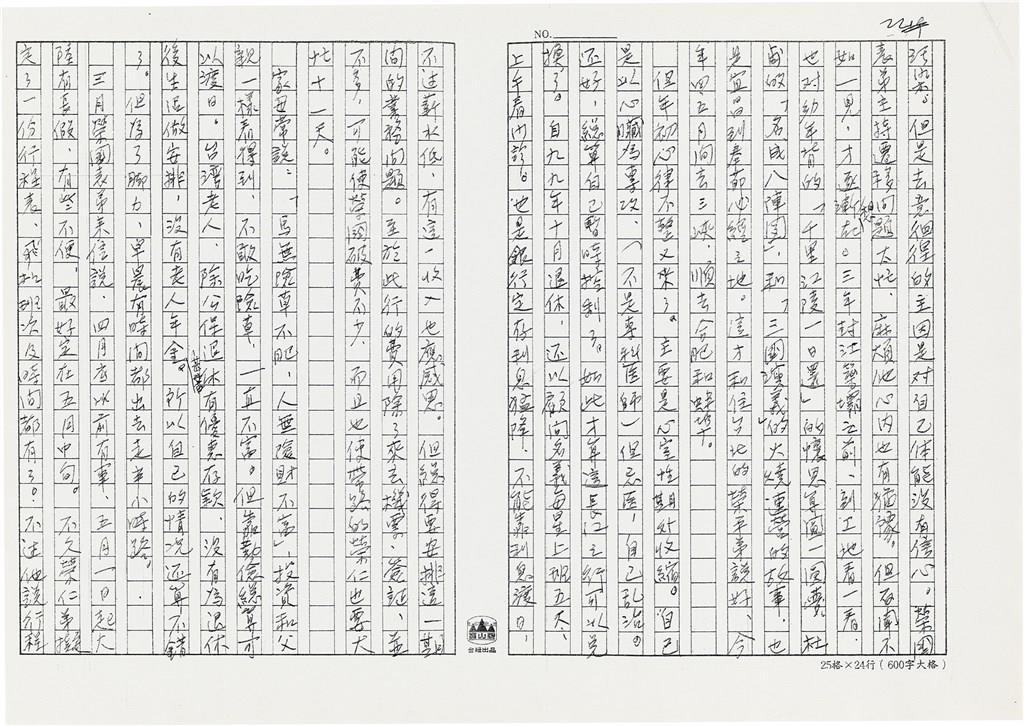 NO.
但是去意徊徨的主因是對自己体能沒有信心。榮国
表弟主持遷移問題太忙，麻煩他心內也有猶豫。但百聞不
如一見，才逐漸想起。三年封江築壩之前，到工地看一看。
也對幼年背的「千里江陵一日還」的懷思算圓一圓夢。杜
甫的「名成八陣圖」，和「三國演義」的火燒連營的故事，也
是宜昌到奉節必經之地。這才和住台北的榮平弟說好，今
年四五月間去三峽，順去合肥和蚌埠。
但年初心律不整又來了。主要是心室性期外收縮。自己
是以心臟為專攻，（不是專科医師）但忌医，自己乱治。
还好，總算自己暫時控制了。如此才算這長江之行可以兌
換了。自九九年十月退休，还以顧問名義每星上班五天，
上午看門診。也是銀行定存利息猛降，不能靠利息渡日，
不过薪水低，有這一收入也應感恩。但總得要安排這一期
間的業務問題。至於此行的費用除了來去機票、簽証，並
不多，可能使榮国破費不少，而且也使帶路的榮仁也要大
忙十一天。
家母常說：「馬無險草不肥，人無險財不富」，投資和父
親一樣看得到，不敢吃險草，一直不富。但靠勤儉總算可
以渡日。台灣老人，除公保退休有優惠存款，沒有為退休
後生活做安排，沒有老人年金。所以自己的情況还算不錯
了。但為了腳力，早晨有時間都出去走半小時路。
三月榮國表弟來信說，四月底以前有事，五月一日起大
陸有長假，有些不便，最好定在五月中旬。不久榮仁弟擬
定了一份行程表，飛机班次及時間都有了。不过他說行程
台紐出品
25格×24行(600字大格)